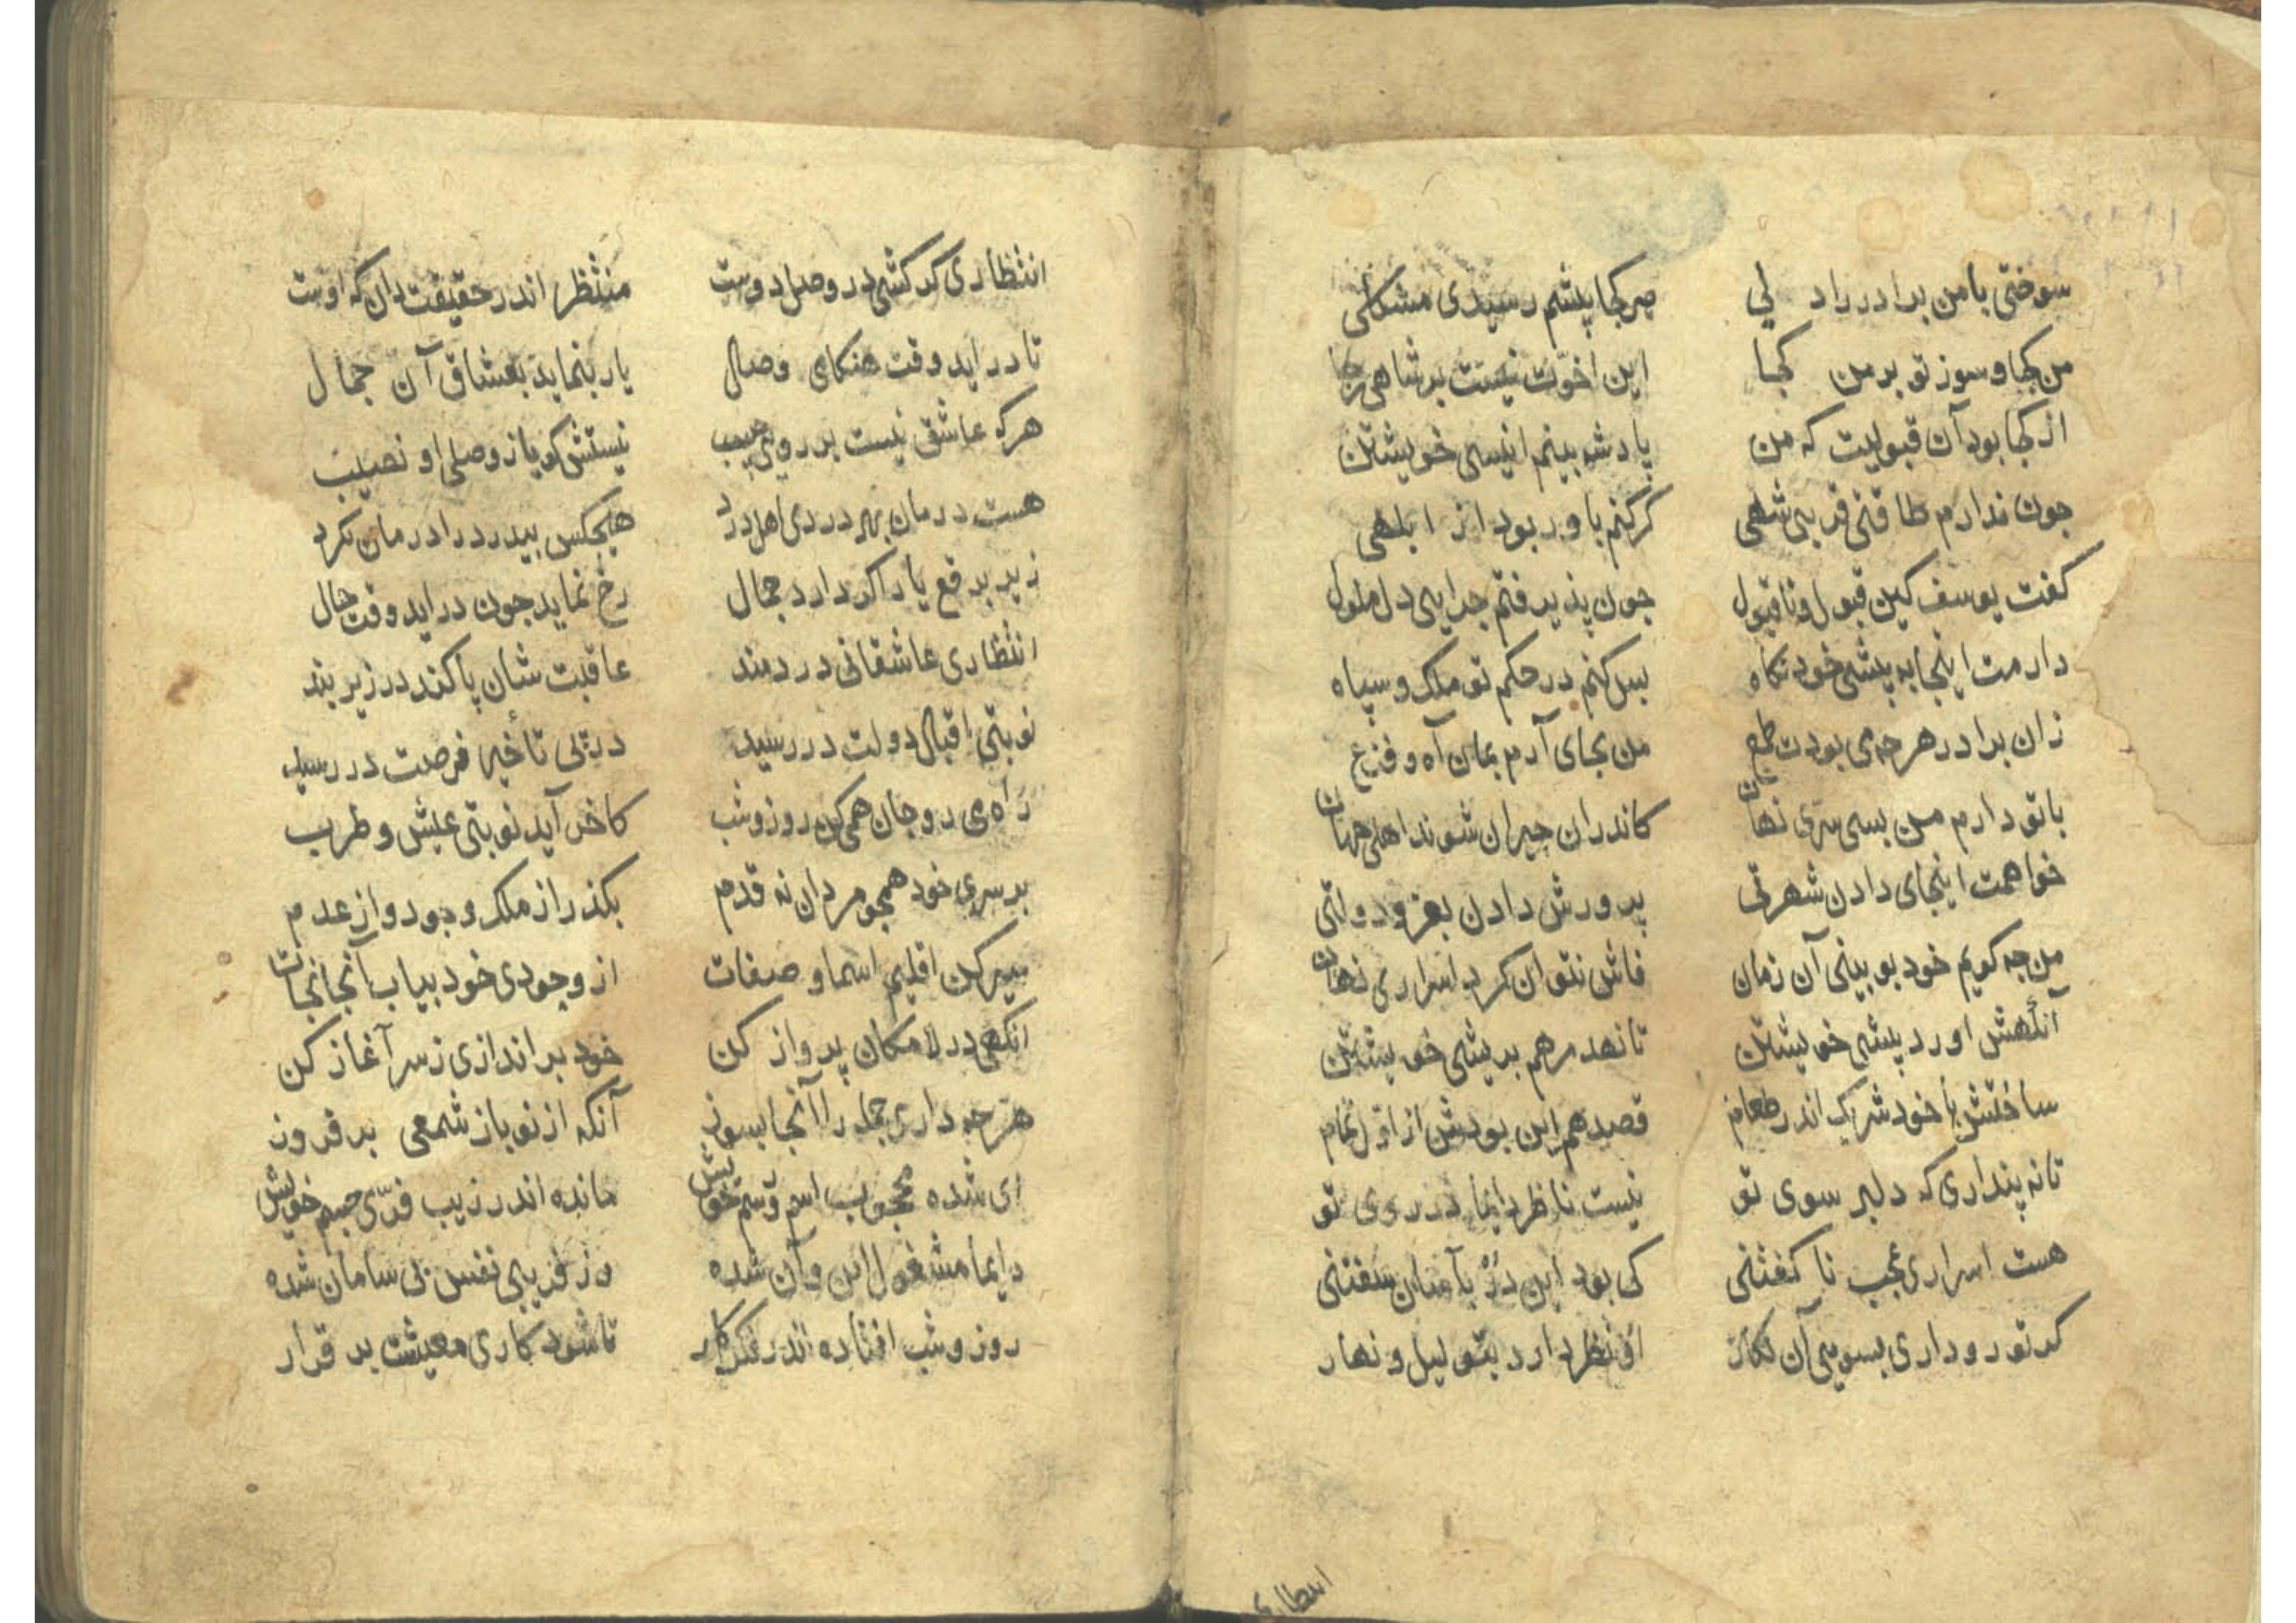 سوختی با من برادر راد لی هر کجا پیشم رسیدی مشکلی
من کجا و سوز تو بر من کجا این اخوّت نیست بر شاهی
از کجا بود آن قبولیت که من پادشه بینم انیسی خویشتن
جون ندارم طاقتی قربی شهی کر کنم باور بود از ابلهی
کفت یوسف کین قبول و ناقبول جون پذیرفتم جرایی دل ملول
دارمت اینجا به پیشی خود نکاه بسل کنم در حکم تو ملک و سپاه
زان برادر هر جه می بودت طمع من بجای آرم بمان آه و فزع
با تو دارم من بسی سری نهان کاندران حیران شوند اهلی جهان
خواهمت اینجای دادن شهرتی پرورش دادن بعز و دولتی
من جه کویم خود بو بینی آن زمان فاش نتوان کرد اسراری نهان
آنکهش اورد پیشی خویشتن تا نهد مرهم بریشی خویشتن
ساختش با خود شریک اندر طعام قصد هم این بودش از اوّل تمام
تا نه پنداری که دلبر سوی تو نیست ناظر دایما در روی تو
هست اسراری عجب نا کفتنی کی بود این دُر بآسان سفتنی
کر تو رو داری بسویی آن نکار او نظر دارد بتو لیل و نهار
انتظاری
انتظاری کر کشی در وصل دوست منتظر اندر حقیقت دان که اوست
تا در اید وقت هنکامی وصال یار بنماید بعشاق آن جمال
هر که عاشق نیست بر رویی حبیب نیستش کویا ز وصلی او نصیب
هست درمان بهر دردی اهل درد هیجکس بیدرد را درمان نکرد
زیر برقع یار اکر دارد جمال رخ نماید جون در اید وقت حال
انتظاری عاشقانی دردمند عاقبت شان پا کند در زیر بند
نوبتی اقبال دولت در رسید در پی تأخیر فرصت در رسید
راه می رو جان همی کن روز و شب کاخر آید نوبتی عیش و طرب
بر سری خود همجو مردان نه قدم بکذر از ملک وجود و از عدم
سیر کن اقلیم اسما و صفات از وجودی خود بیاب آنجا نجات
انکهی در لامکان پرواز کن خود براندازی ز سر آغاز کن
هر جه داری جمله را آنجا بسوز آنکه از نو باز شمعی بر فروز
ای شده محجوب اسم و رسم خویش مانده اندر زیب فرّی جسم خویش
دایما مشغول این و آن شده وز فریبی نفس بی سامان شده
روز و شب افتاده اندر فکر کار تا شود کاری معیشت بر قرار